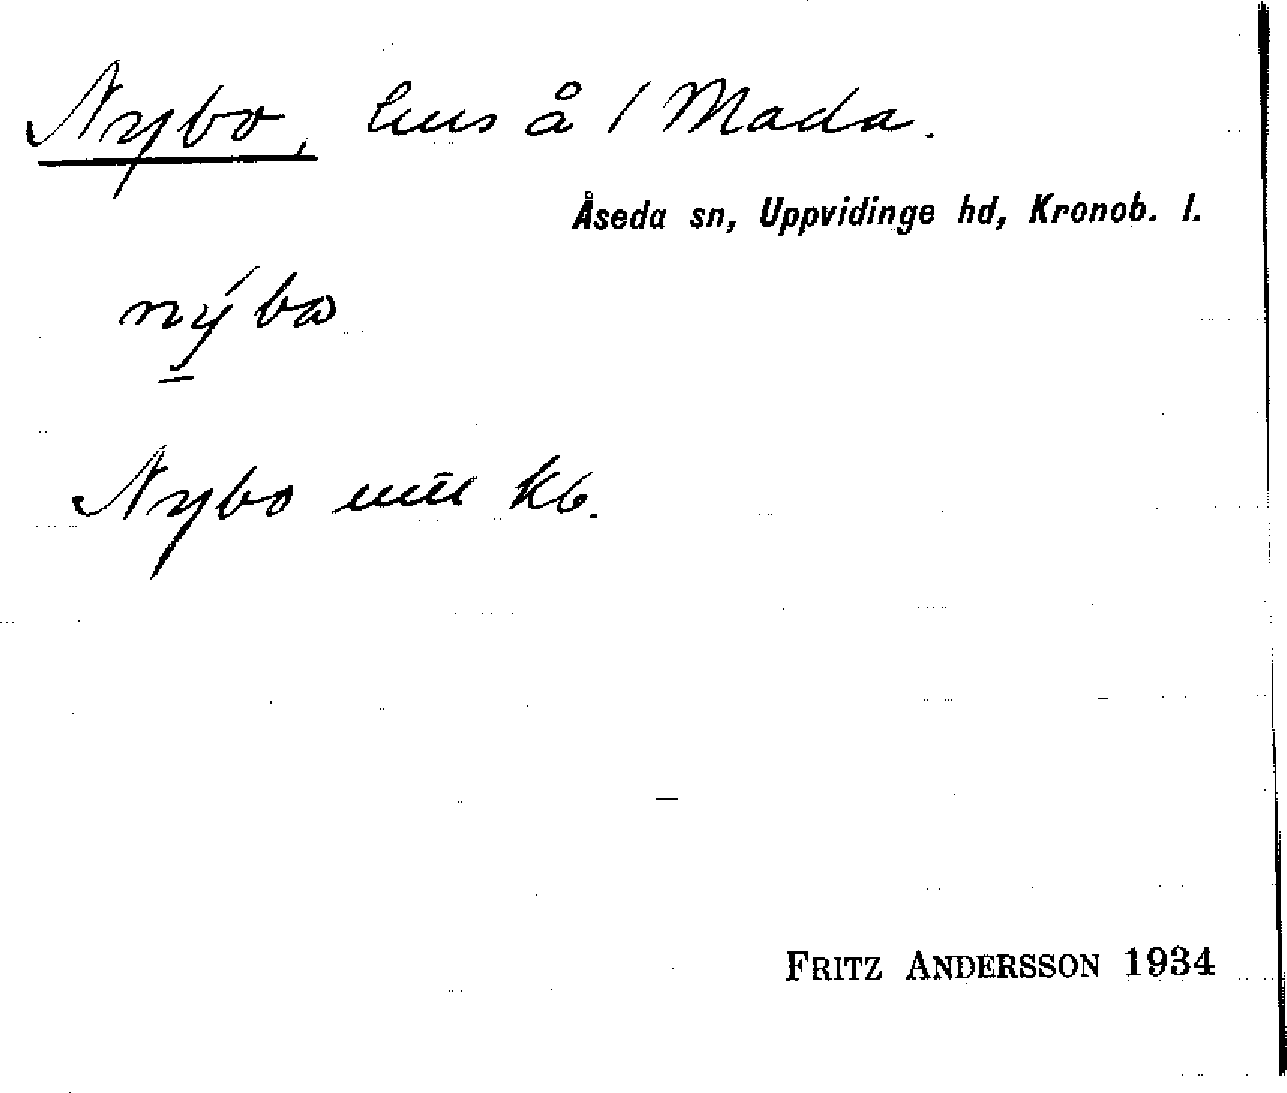 Nybo, hus å / Mada.
Åseda sn, Uppvidinge hd, Kronob. l.
nýbo
Nybo kb.
FRITZ ANDERSSON 1934